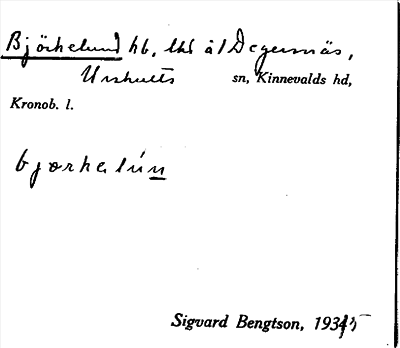 Björkelund hb, lht å 1 Degernäs,
Urshults sn, Kinnevalds hd,
Kronob. l.
bjorkelún
Sigvard Bengtson, 1935